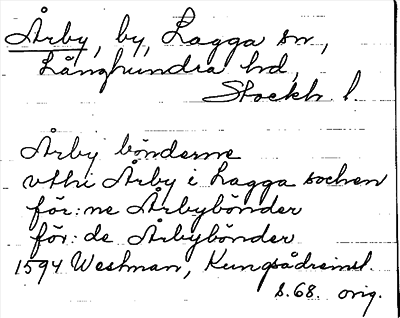 Årby, by, Lagga sn,
Långhundra hd,
Stockh l.
Årby bönderne
vthi Årby i Lagga sochen
för: ne Årbybönder
för: de Årbybönder
1594 Westman, Kungsådreinst.
s. 68. orig.